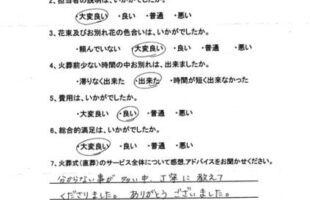 2、担当者の説明は、いかがでしたか。
・大変良い ・良い ・普通 ・悪い
3、花束及びお別れ花の色合いは、いかがでしたか。
・頼んでいない ・大変良い ・良い ・普通 ・悪い
4、火葬前少ない時間の中お別れは、出来ましたか。
・滞りなく出来た ・出来た ・時間が短く出来なかった
5、費用は、いかがでしたか。
・大変良い ・良い ・普通 ・悪い
6、総合的満足は、いかがでしたか。
・大変良い ・良い ・普通 ・悪い
7、火葬式(直葬)のサービス全体について感想、アドバイスをお聞かせください。
分からない事が多い中、丁寧に教えて
くださりました。ありがとうございました。